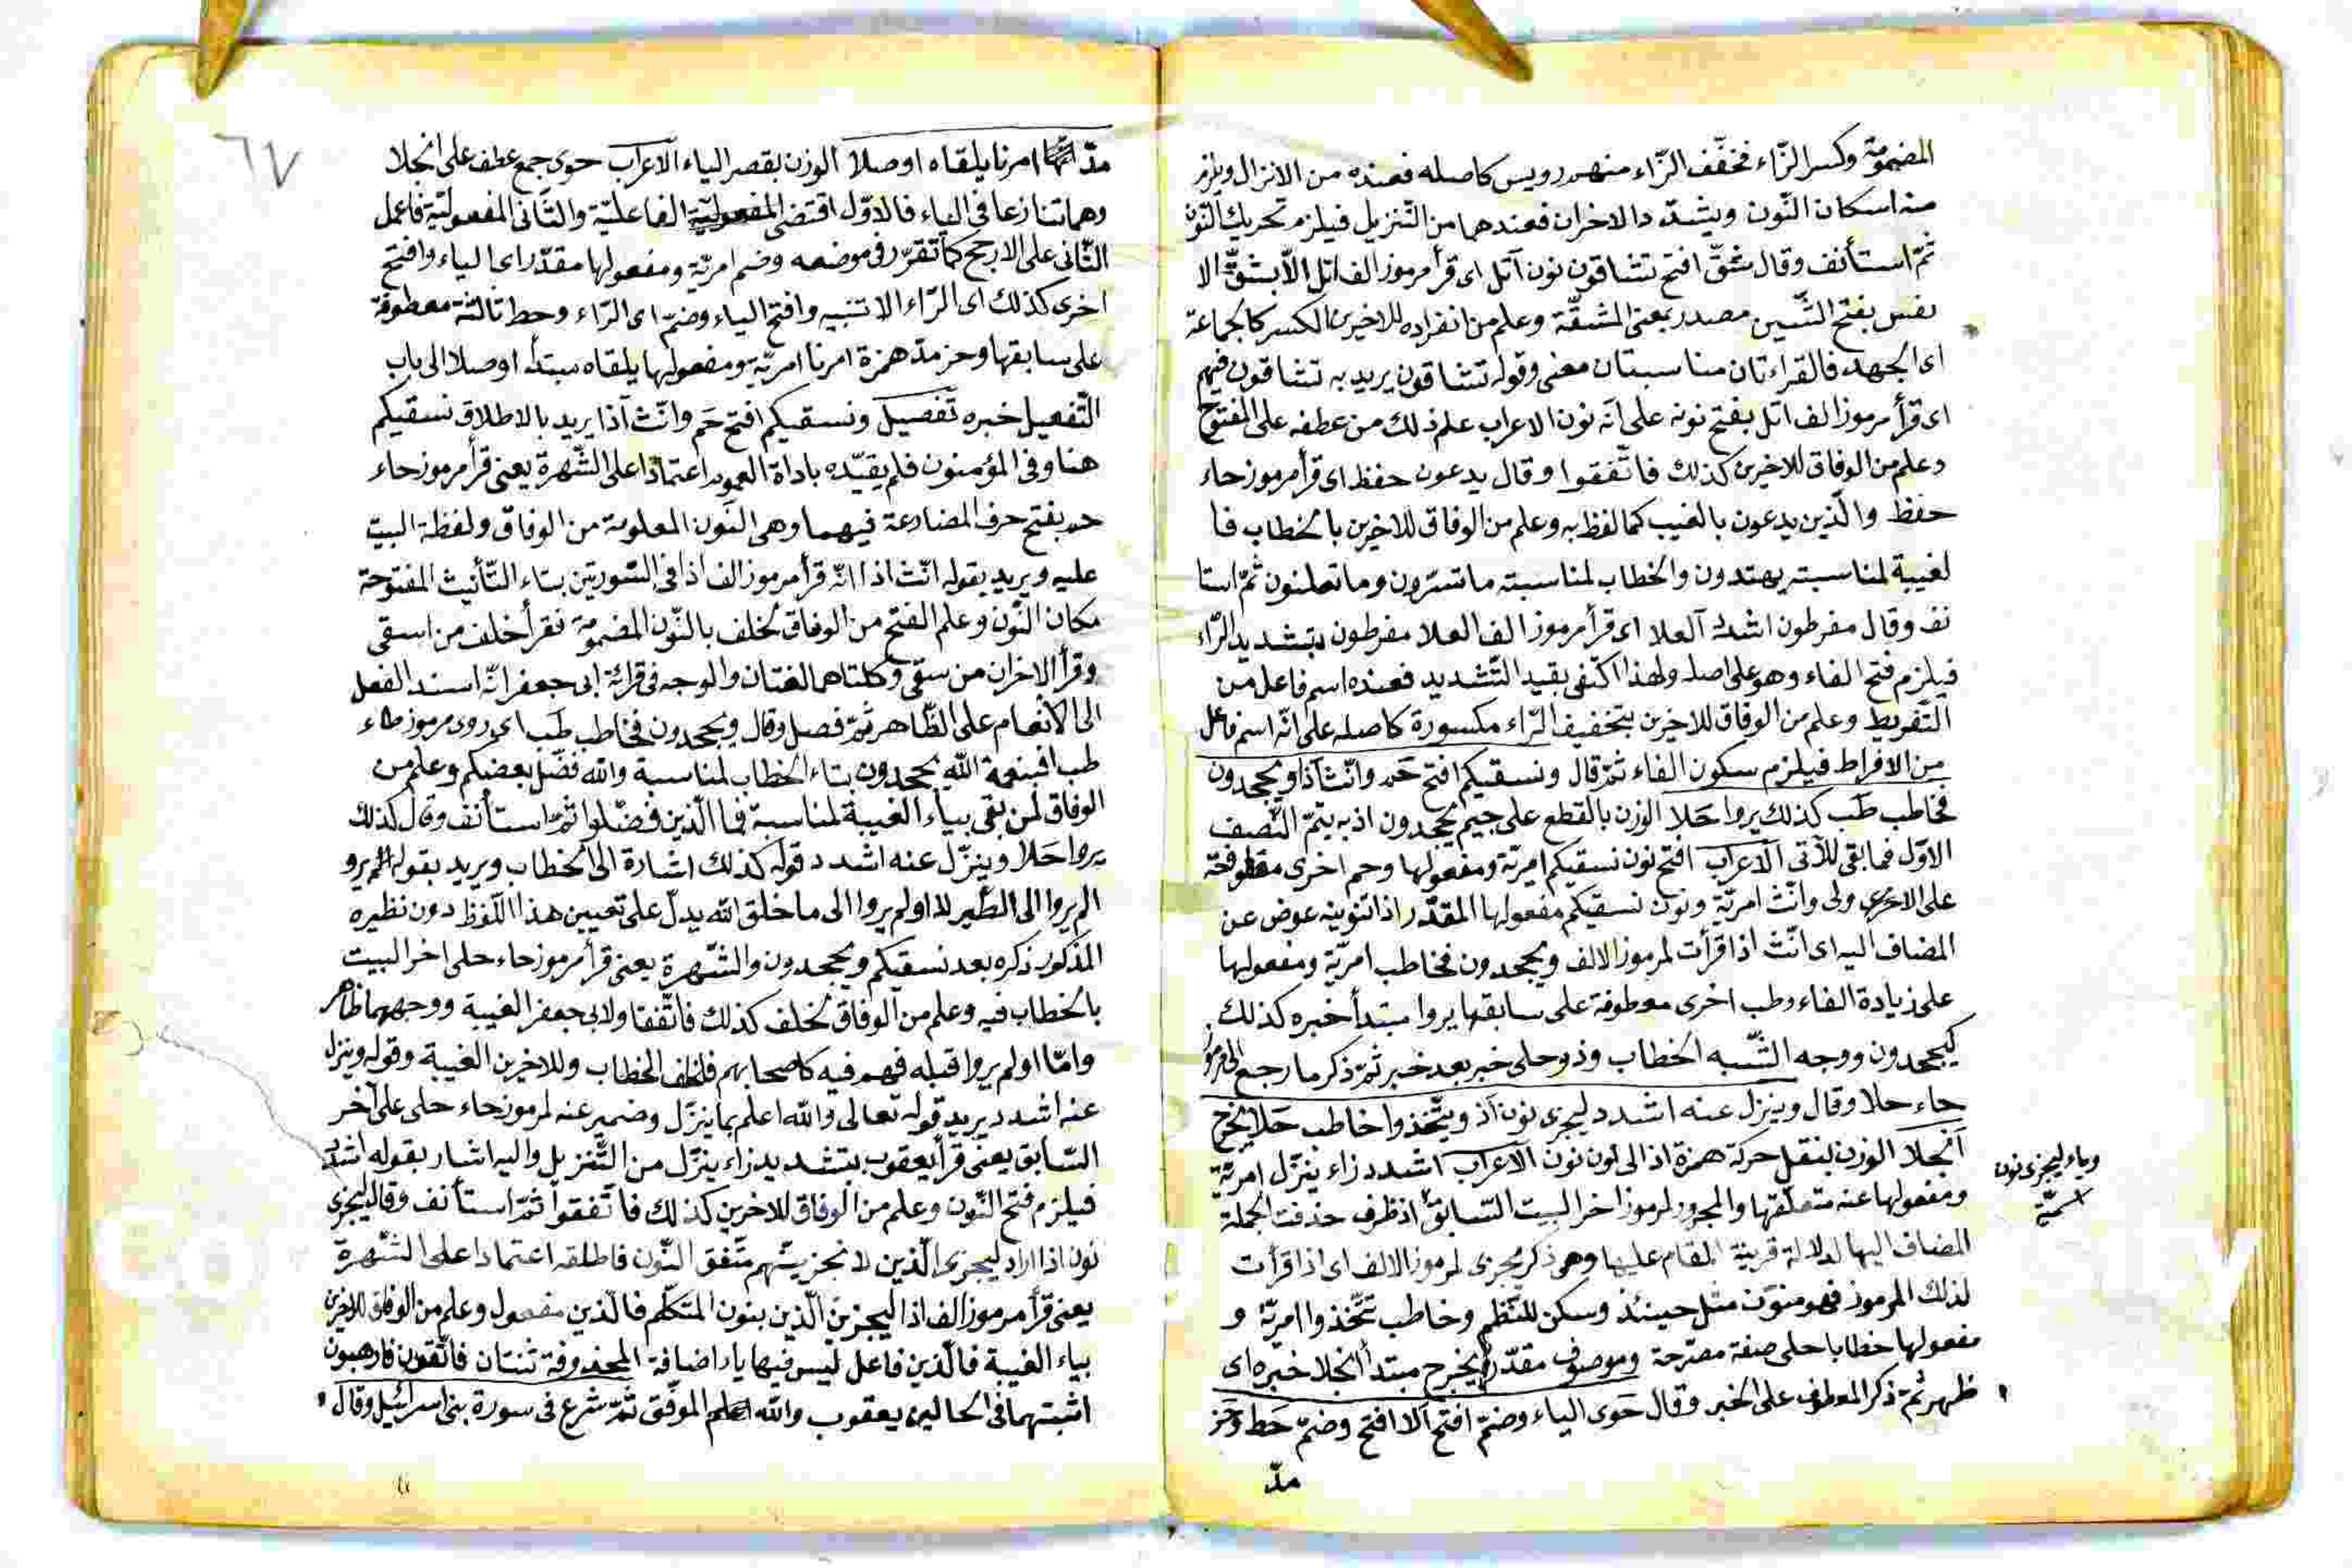 المضمومة وكسر الزّاء فخفّف الزّاء منهم رويس كاصله فعنده من الانزال ويلزم
منه اسكان النّون ويشدّد الاخران فعندهما من التّنزيل فيلزم تحريك النّون
ثمّ استأنف وقال شقّ افتح تشاقون نون آتل اى قرأ مرموز الف اتل الّا بشقّ الا
نفس بفتح الشّين مصدر بمعنى المشقّة وعلم من انفراده للاخرين الكسر كالجماعة
اى الجهد فالقراءتان مناسبتان معنى وقوله تشاقون يريد به تشاقون فيهم
اى قرأ مرموز الف اتل بفتح نونه على انّه نون الاعراب علم ذلك من عطفه على المفتوح
وعلم من الوفاق للاخرين كذلك فاتّفقوا وقال يدعون حفظ اى قرأ مرموز حاء
حفظ والّذين يدعون بالغيب كما لفظ به وعلم من الوفاق للاخرين بالخطاب فا
لغيبة لمناسبته يهتدون والخطاب لمناسبته ما تسرّون وما تعلنون ثمّ استا
نف وقال مفرطون اشدد العلا اى قرأ مرموز الف العلا مفرطون بتشديد الرّاء
فيلزم فتح الفاء وهو على اصله ولهذا اكتفى بقيد التّشديد فعنده اسم فاعل من
التّفريط وعلم من الوفاق للاخرين بتخفيف الرّاء مكسورة كاصله على انّه اسم فاعل
من الافراط فيلزم سكون الفاء ثمّ قال ونسقيكم افتح حم وانّث اذا ويجحدون
فخاطب طب كذلك يروا حلا الوزن بالقطع على جيم يجحدون اذ به يتمّ النّصف
الاوّل فما بقى للآتى الاعراب افتح نون نسقيكم امريّة ومفعولها وحم اخرى معطوفة
على الاخرى ولى وانّث امريّة ونون نسقيكم مفعولها المقدّر اذا تنوينه عوض عن
المضاف اليه اى انّث اذا قرأت لمرموز الالف ويجحدون فخاطب امريّة ومفعولها
على زيادة الفاء وطب اخرى معطوفة على سابقها يروا مبتدأ خبره كذلك
كيجحدون ووجه الشّبه الخطاب وذو حلى خبر بعد خبر ثمّ ذكر ما رجع الى مرموز
حاء حلا وقال وينزل عنه اشدد ليجزى نون اذ ويتّخذوا خاطب حلا يخرج
انجلا الوزن لنقل حركة همزة اذ الى نون نون الاعراب اشدد زاء ينزّل امريّة
ومفعولها عنه متعلّقها والمجرور لرموز اخر البيت السّابق اذ ظرف حذفت الجملة
وياء ليجزى نون
اسميّة
المضاف اليها لدلالة قرينة المقام عليها وهى ذكر يجزى لمرموز الالف اى اذا قرأت
لذلك المرموز فهو منوّن مثل حينئذ وسكن للنّظم وخاطب تتّخذوا امريّة و
مفعولها خطابا حلى صفة مصرّحة وموصوف مقدّر يخرج مبتدأ انجلا خبره اى
ظهر ثمّ ذكر المعطوف على الخبر وقال حوى الياء وضمّ افتح الا افتح وضمّ حط وحز
مدّ
٦٧
مدّ امرنا يلقاه اوصلا الوزن بقصر الياء الاعراب حوى جمع عطف على انجلا
وهما تنازعا فى الياء فالاوّل اقتضى الفاعليّة والثّانى المفعوليّة فاعمل
الثّانى على الارجح كما تقرّر فى موضعه وضم امريّة ومفعولها مقدّر اى الياء وافتح
اخرى كذلك اى الرّاء الا تنبيه وافتح الياء وضمّ اى الرّاء وحط ثالثة معطوفة
على سابقها وحز مدّ همزة امرنا امريّة ومفعولها يلقاه مبتدأ اوصلا الى باب
التّفعيل خبره تفصيل ونسقيكم افتح حم وانّث اذا يريد بالاطلاق نسقيكم
هنا وفى المؤمنون فلم يقيّده باداة العموم اعتمادا على الشّهرة يعنى قرأ مرموز حاء
حم بفتح حرف المضارعة فيهما وهى النّون المعلومة من الوفاق ولفظة البيت
عليه ويريد بقوله انّث اذا انّه قرأ مرموز الف اذا فى السّورتين بتاء التّأنيث المفتوحة
مكان النّون وعلم الفتح من الوفاق لخلف بالنّون المضمومة فقرأ خلف من اسقى
وقرأ الاخران من سقى وكلتاهما لغتان والوجه فى قرائة ابى جعفر انّه اسند الفعل
الى الانعام على الظّاهر ثمّ فصل وقال ويجحدون فخاطب طب اى روى مرموز طاء
طب افبنعمة اللّه يجحدون بتاء الخطاب لمناسبة والله فضّل بعضكم وعلم من
الوفاق لمن بقى بياء الغيبة لمناسبة فما الّذين فضّلوا ثمّ استأنف وقال كذلك
يروا حلا وينزّل عنه اشدد قوله كذلك اشارة الى الخطاب ويريد بقوله الم يرو
الم يروا الى الطّير لا اولم يروا الى ما خلق الله يدلّ على تعيين هذا اللّفظ دون نظيره
المذكور ذكره بعد نسقيكم ويجحدون والشّهرة يعنى قرأ مرموز حاء حلى اخر البيت
بالخطاب فيه وعلم من الوفاق لخلف كذلك فاتّفقا ولابى جعفر الغيبة ووجههما ظاهر
وامّا اولم يروا قبله فهم فيه كاصحابهم فلخلف الخطاب وللاخرين الغيبة وقوله وينزل
عنه اشدد يريد قوله تعالى والله اعلم بما ينزّل وضمير عنه لمرموز حاء حلى على آخر
السّابق يعنى قرأ يعقوب بتشديد زاء ينزّل من التّنزيل واليه اشار بقوله اشدد
فيلزم فتح النّون وعلم من الوفاق للاخرين كذلك فاتّفقوا ثمّ استأنف وقال ليجزى
نون اذا اراد ليجزى الّذين لا نجزينّهم متّفق النّون فاطلقه اعتمادا على الشّهرة
يعنى قرأ مرموز الف اذا ليجزين الّذين بنون المتكلّم فالّذين مفعول وعلم من الوفاق للاخرين
بياء الغيبة فالّذين فاعل ليس فيها ياء اضافة المحذوفة ثنتان فاتّقون فارهبون
اثبتهما فى الحالين يعقوب والله الموفّق ثمّ شرع فى سورة بنى اسرائيل وقال